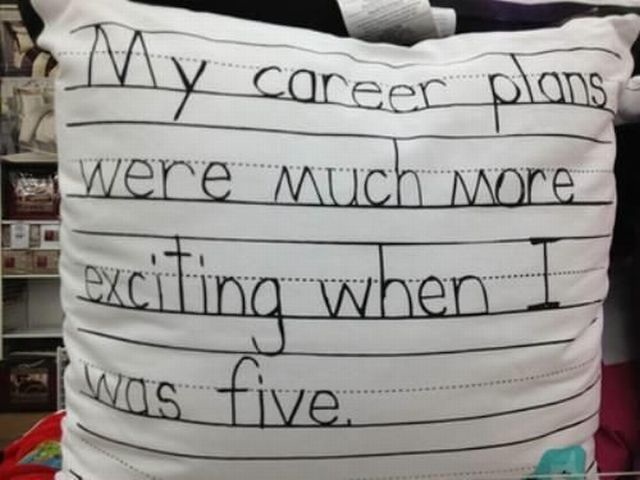 My career plans
were much more
exciting when I
was five.